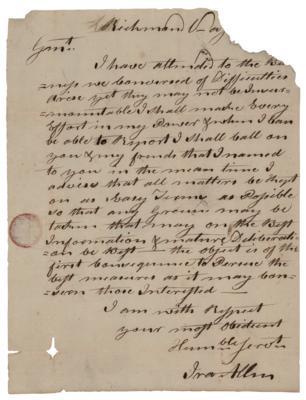 Richmond
Gent.
I have attend to the Bu-
siness we Conversed of Difficulties
Arose yet they may not be Insur-
mountable I shall make Every
Effort in my Power & when I Can
be able to Report I shall Call on
you & my freinds that I named
to you in the mean time I
advise that all matters be Kept
on as Easey Terms as Posible
so that any Ground may be
taken that may on the Best
Information & mature Deliberati-
on be Best — the object is of the
first Consequence to Persue the
best measures as it may Con-
sern those Interested —
I am with Respect
your most obedient
Humble Servt.
Ira Allen